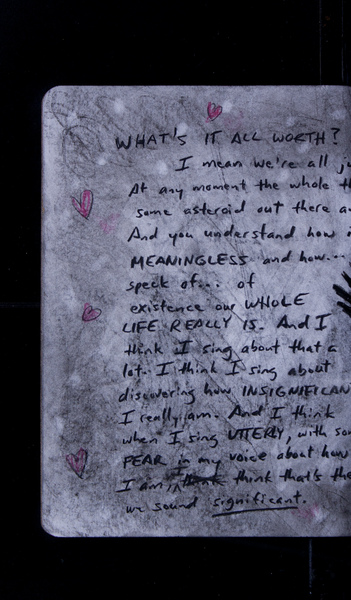 WHAT'S IT ALL WORTH?
I mean we're all
At any moment the whole
some asteroid out there
And you understand how
MEANINGLESS and how...
speck of... of
existence our WHOLE
LIFE REALLY IS. And I
think I sing about that a
lot. I think I sing about
discovering how INSIGNIFICAN
I really am. And I think
when I sing UTTERLY, with
FEAR in my voice about how
I am, I think that's the
we sound significant.